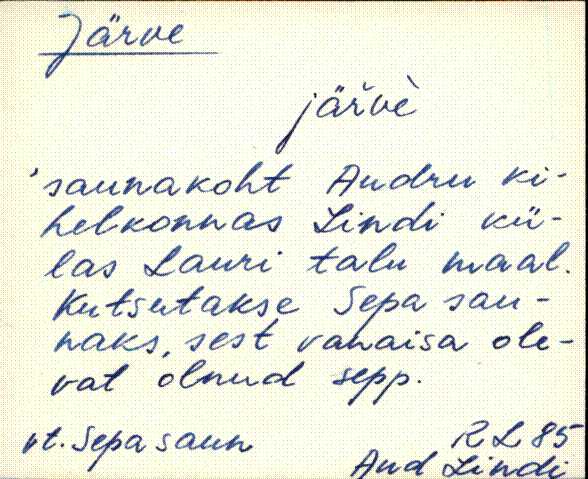 Järve
järvè
'saunakoht Audru ki-
helkonnas Lindi kü-
las Lauri talu maal.
Kutsutakse Sepa sau-
naks, sest vanaisa ole-
vat olnud sepp.
vt. Sepa saun
RL 85
Aud Lindi